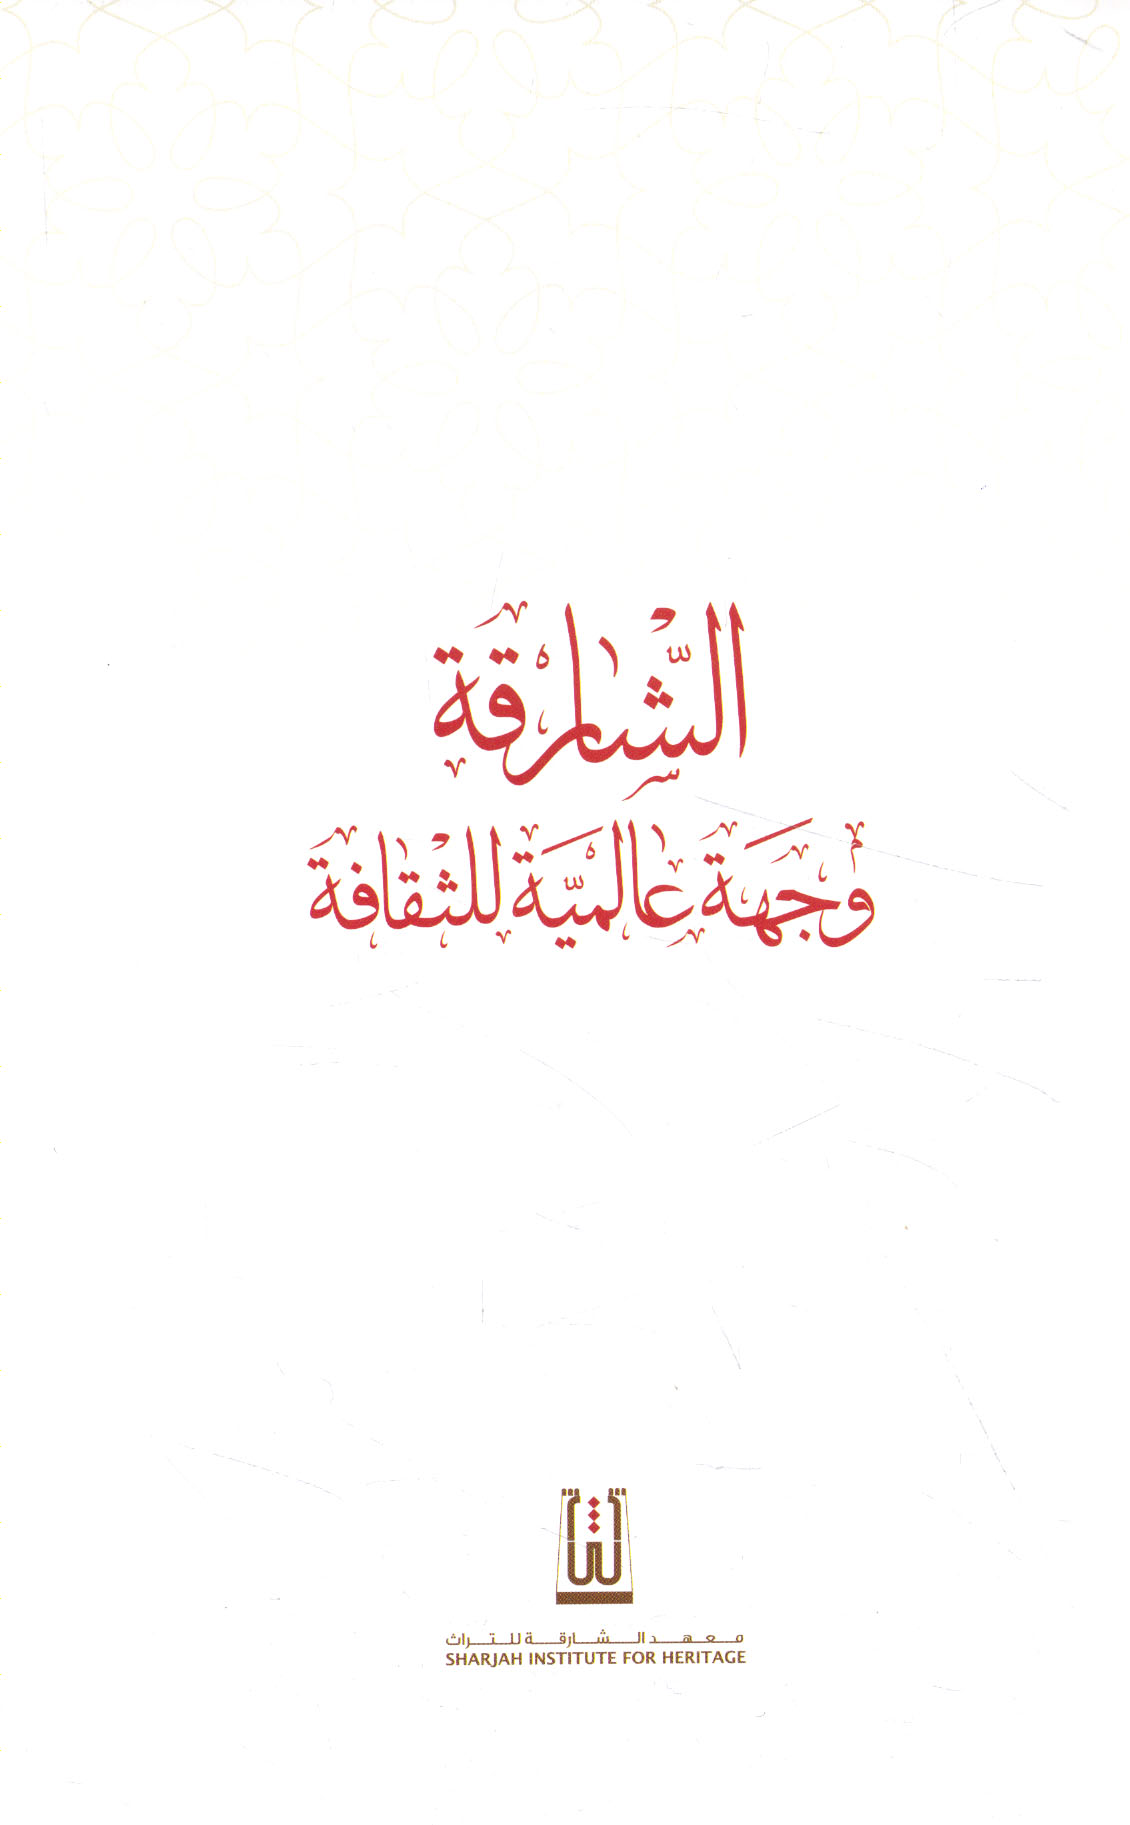 الشّارقة
وجهة عالميّة للثقافة
معهد الشارقة للتراث
SHARJAH INSTITUTE FOR HERITAGE